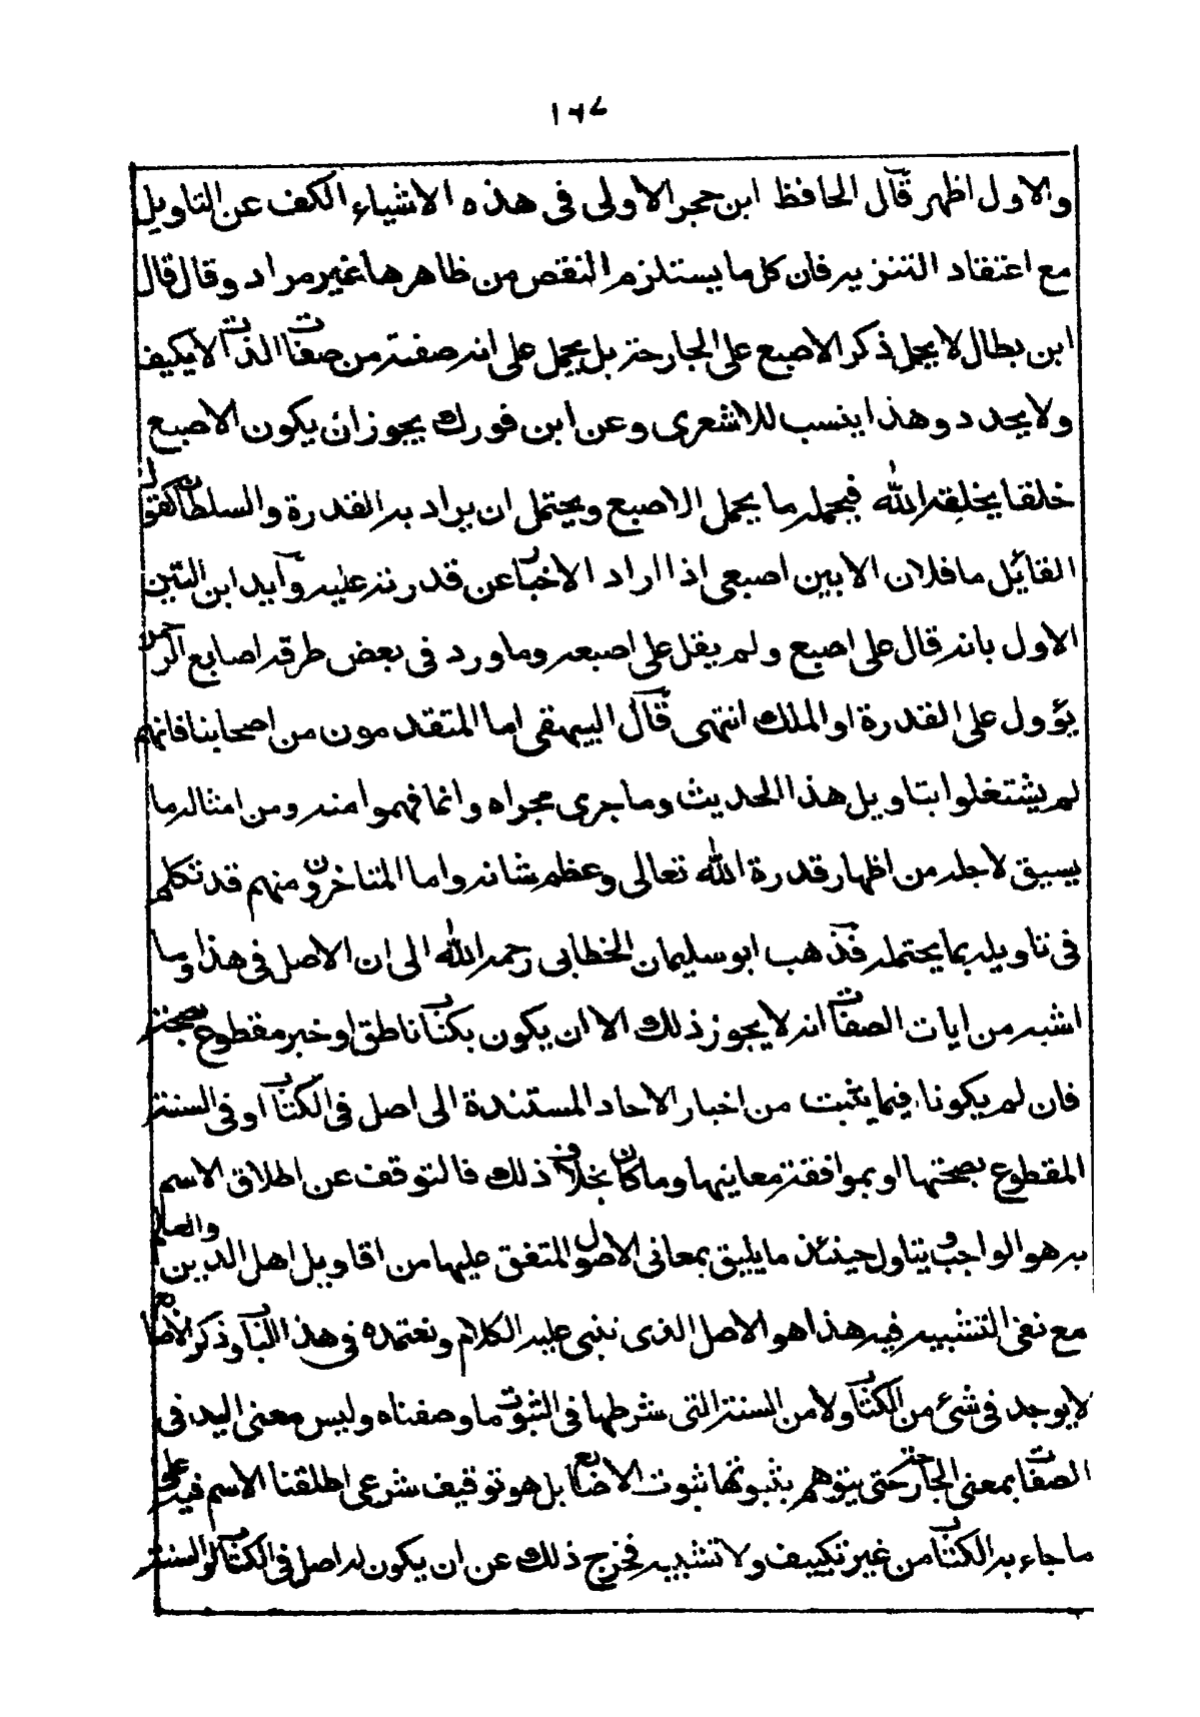 ١٦٧
والاول اظهر قال الحافظ ابن حجر الاولى فى هذه الاشياء الكف عن التاويل
مع اعتقاد التنزيه فان كل ما يستلزم النقص من ظاهرها غير مراد وقال قال
ابن بطال لا يحمل ذكر الاصبع على الجارحة بل يحمل على انه صفة من صفات الذات لا يكيف
ولا يحدد وهذا ينسب للاشعرى وعن ابن فورك يجوز ان يكون الاصبع
خلقا يخلقه الله فيحمله ما يحمل الاصبع ويحتمل ان يراد به القدرة والسلطان كقول
القائل ما فلان الا بين اصبعى اذا اراد الاخبار عن قدرته عليه وايد ابن التين
الاول بانه قال على اصبع ولم يقل على اصبعه وما ورد فى بعض طرقه اصابع الرحمن
يؤول على القدرة او الملك انتهى قال البيهقى اما المتقدمون من اصحابنا فانهم
لم يشتغلوا بتاويل هذا الحديث وما جرى مجراه وانما فهموا منه ومن امثاله ما
يسبق لاجله من اظهار قدرة الله تعالى وعظم شانه واما المتاخرون منهم قد تكلموا
فى تاويله بما يحتمله فذهب ابو سليمان الخطابى رحمه الله الى ان الاصل فى هذا وما
اشبه من ايات الصفات انه لا يجوز ذلك الا ان يكون بكتاب ناطق او خبر مقطوع بصحته
فان لم يكونا فيما يثبت من اخبار الاحاد المستندة الى اصل فى الكتاب او فى السنة
المقطوع بصحتها او بموافقة معاينها وما كان بخلاف ذلك فالتوقف عن اطلاق الاسم
به هو الواجب ويتاول حينئذ ما يليق بمعانى الاصول المتفق عليها من اقاويل اهل الدين والعلم
مع نفى التشبيه فيه هذا هو الاصل الذى نبنى عليه الكلام ونعتمده فى هذا الباب وذكر الاصابع
لا يوجد فى شئ من الكتاب ولا من السنة التى شرطها فى الثبوت ما وصفناه وليس معنى اليد فى
الصفات بمعنى الجارحة حتى يتوهم بثبوتها ثبوت الاصابع بل هو توقيف شرعى اطلقنا الاسم فيه على
ما جاء به الكتاب من غير تكييف ولا تشبيه فخرج ذلك عن ان يكون له اصل فى الكتاب او السنة